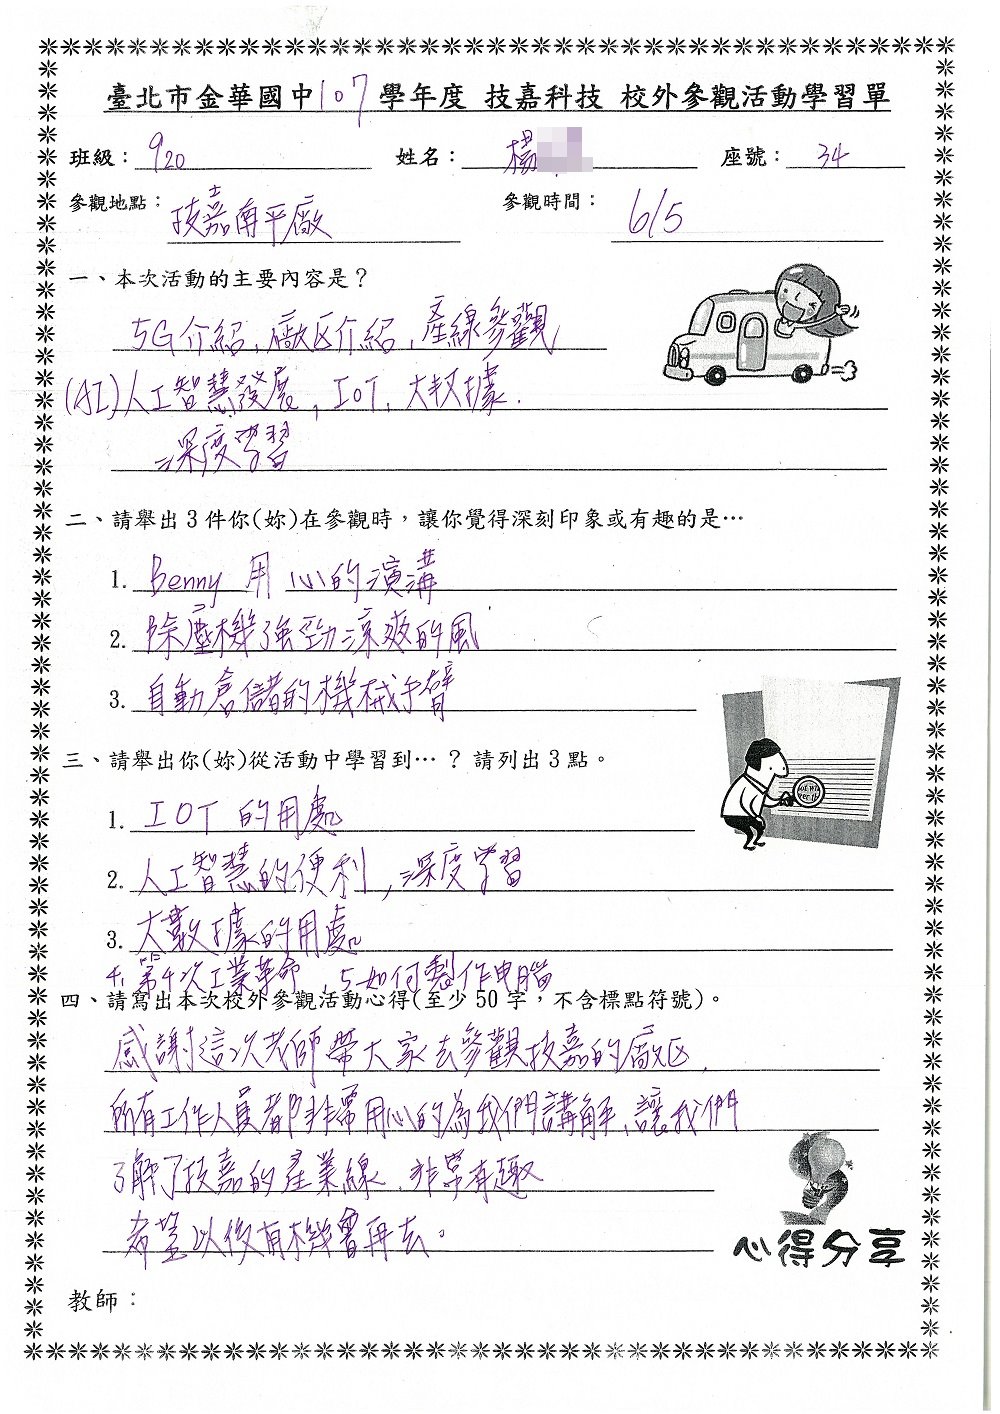 臺北市金華國中107學年度 技嘉科技 校外參觀活動學習單
班級：920 姓名：楊 座號：34
參觀地點：技嘉南平廠 參觀時間：6/5
一、本次活動的主要內容是？
5G介紹、廠区介紹、產線參觀
(AI)人工智慧發展, IoT, 大数據.
深度學習
二、請舉出3件你(妳)在參觀時，讓你覺得深刻印象或有趣的是…
1. Benny 用心的演講
2. 除塵機強勁涼爽的風
3. 自動倉儲的機械手臂
三、請舉出你(妳)從活動中學習到…？請列出3點。
1. IOT 的用處
2. 人工智慧的便利, 深度學習
3. 大數據的用處
4. 第4次工業革命, 5.如何製作电腦
四、請寫出本次校外參觀活動心得(至少50字，不含標點符號)。
感謝這次老師帶大家去參觀技嘉的廠区,
所有工作人員都非常用心的為我們講解、讓我們
了解了技嘉的產業線, 非常有趣
希望以後有機會再去。
心得分享
教師：